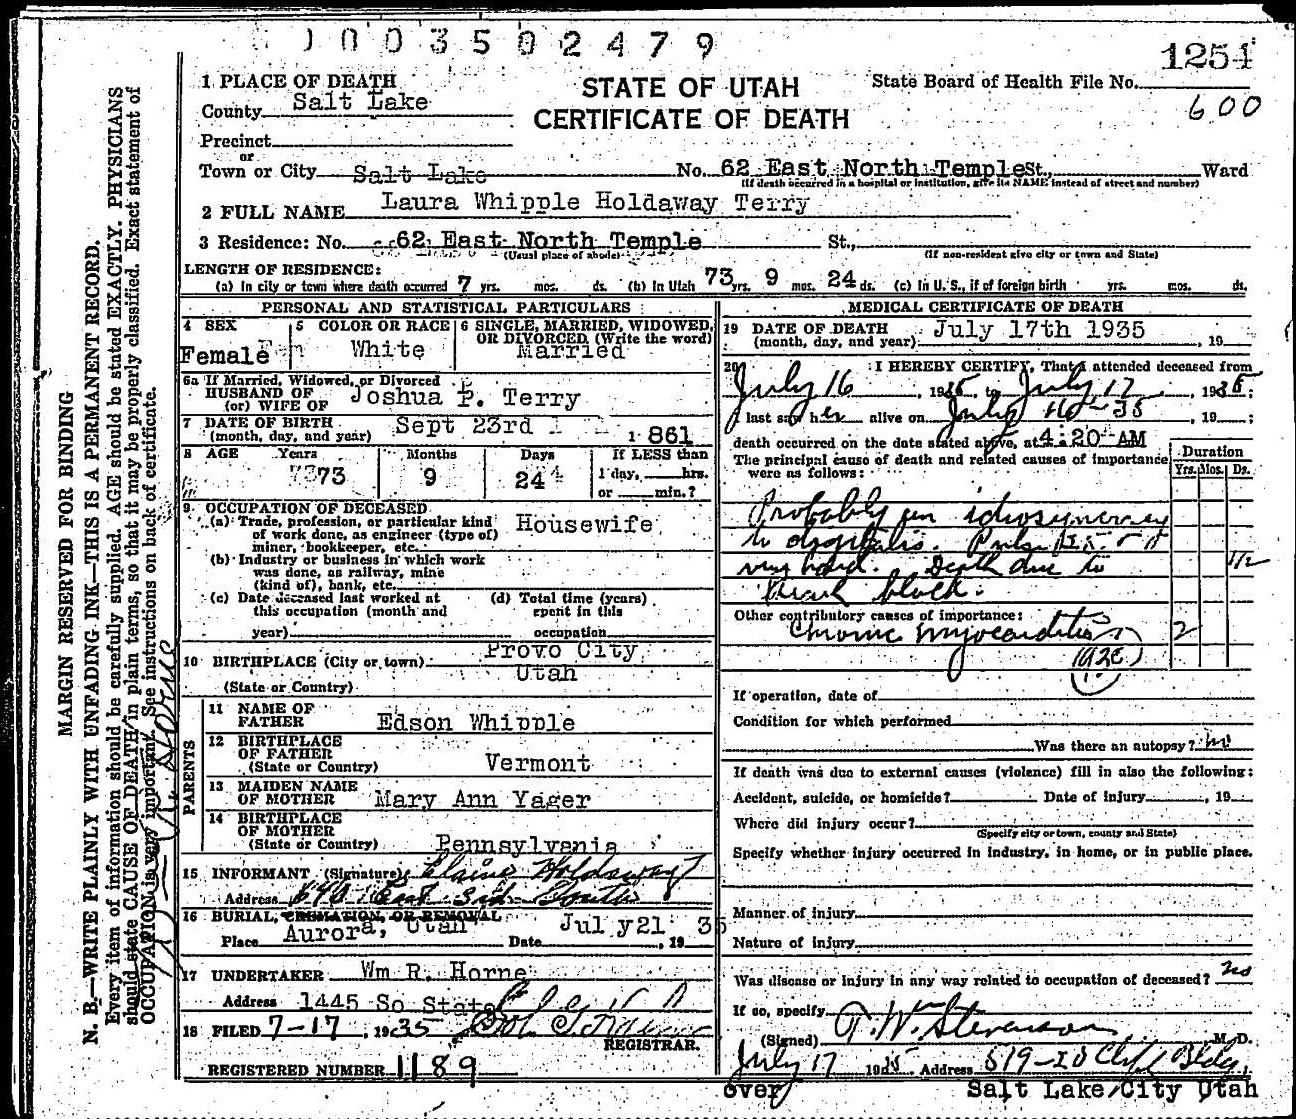 003502479
1254
600
1 PLACE OF DEATH
STATE OF UTAH
CERTIFICATE OF DEATH
State Board of Health File No.
County Salt Lake
Precinct
or
Town or City Salt Lake No. 62 East North Temple St., Ward
(If death occurred in a hospital or institution, give its NAME instead of street and number)
2 FULL NAME Laura Whipple Holdaway Terry
3 Residence: No. 62 East North Temple St.,
(Usual place of abode) (If non-resident give city or town and State)
LENGTH OF RESIDENCE:
(a) In city or town where death occurred 7 yrs. mos. ds. (b) In Utah 73 yrs. 9 mos. 24 ds. (c) In U. S., if of foreign birth yrs. mos. ds.
PERSONAL AND STATISTICAL PARTICULARS
4 SEX Female
5 COLOR OR RACE White
6 SINGLE, MARRIED, WIDOWED, OR DIVORCED (Write the word) Married
6a If Married, Widowed, or Divorced
HUSBAND OF
(or) WIFE OF Joshua P. Terry
7 DATE OF BIRTH
(month, day, and year) Sept 23rd 1861
8 AGE Years Months Days If LESS than
73 9 24 1 day, hrs.
or min.?
9 OCCUPATION OF DECEASED
(a) Trade, profession, or particular kind of work done, as engineer (type of) miner, bookkeeper, etc. Housewife
(b) Industry or business in which work was done, as railway, mine (kind of), bank, etc.
(c) Date deceased last worked at this occupation (month and year)
(d) Total time (years) spent in this occupation
10 BIRTHPLACE (City or town) Provo City
(State or Country) Utah
PARENTS
11 NAME OF FATHER Edson Whipple
12 BIRTHPLACE OF FATHER
(State or Country) Vermont
13 MAIDEN NAME OF MOTHER Mary Ann Yager
14 BIRTHPLACE OF MOTHER
(State or Country) Pennsylvania
15 INFORMANT (Signature) Elaine Holdaway
Address 640 East 3rd South
16 BURIAL, CREMATION, OR REMOVAL
Place Aurora, Utah Date July 21, 1935
17 UNDERTAKER Wm R. Horne
Address 1445 So State
18 FILED 7-17, 1935
REGISTRAR.
REGISTERED NUMBER 1189
MEDICAL CERTIFICATE OF DEATH
19 DATE OF DEATH July 17th 1935
(month, day, and year) , 19
20 I HEREBY CERTIFY, That I attended deceased from
July 16, 1935, to July 17, 1935;
last saw her alive on July 16-35, 19 ;
death occurred on the date stated above, at 4:20 AM
The principal cause of death and related causes of importance were as follows:
Duration
Yrs. Mos. Ds.
Probably an idiosyncrasy
to digitalis. Pulse
very hard. Death due to 1/2
Heart block.
Other contributory causes of importance:
Chronic myocarditis 2
If operation, date of
Condition for which performed
Was there an autopsy? no
If death was due to external causes (violence) fill in also the following:
Accident, suicide, or homicide? Date of injury , 19
Where did injury occur?
(Specify city or town, county and State)
Specify whether injury occurred in industry, in home, or in public place.
Manner of injury
Nature of injury
Was disease or injury in any way related to occupation of deceased? no
If so, specify
(Signed) T. W. Stevenson M. D.
July 17 1935. Address 519-20 Clift Bldg.
over Salt Lake City Utah
MARGIN RESERVED FOR BINDING
N. B.—WRITE PLAINLY WITH UNFADING INK—THIS IS A PERMANENT RECORD.
Every item of information should be carefully supplied. AGE should be stated EXACTLY. PHYSICIANS
should state CAUSE OF DEATH in plain terms, so that it may be properly classified. Exact statement of
OCCUPATION is very important. See instructions on back of certificate.